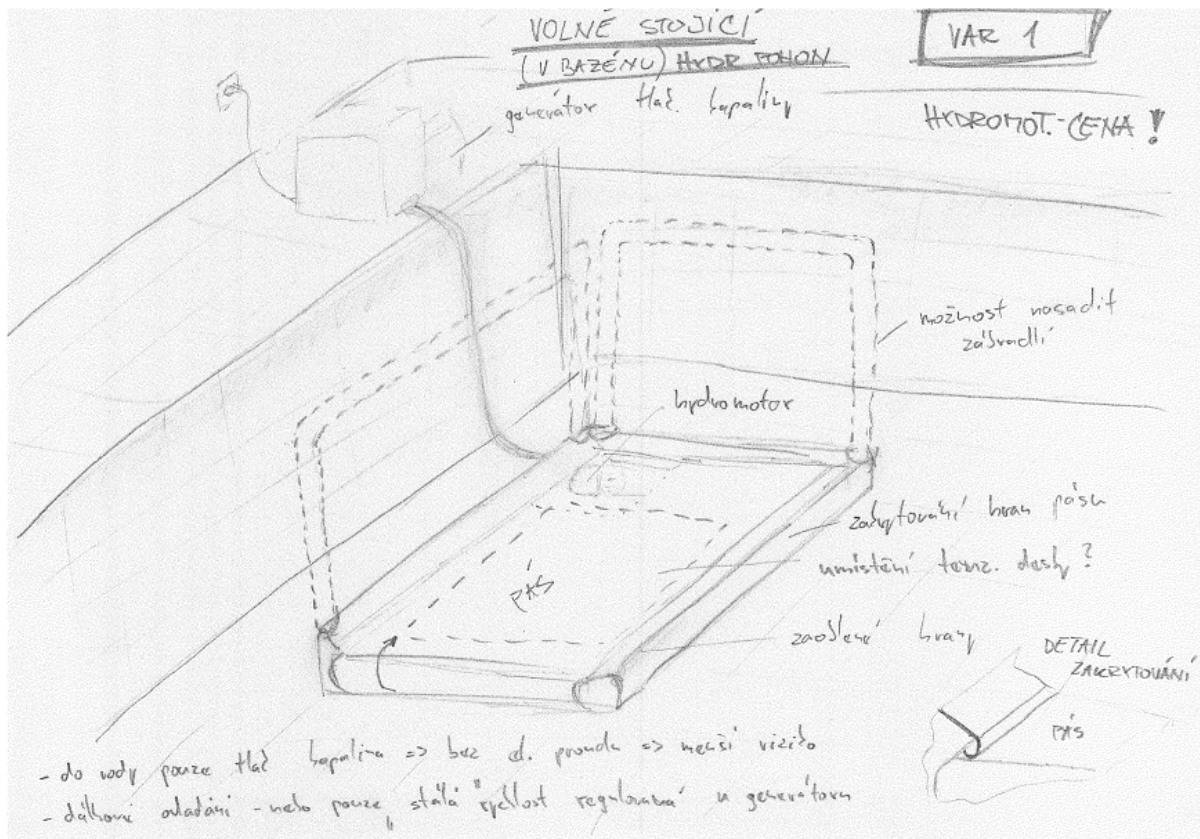 VOLNĚ STOJÍCÍ
(V BAZÉNU) HYDR POHON
VAR 1
generátor tlač. kapaliny
HYDROMOT.-CENA!
možnost nasadit
zábradlí
hydromotor
zakrytování hran pásu
umístění tenz. desky?
PÁS
zaoblené hrany
DETAIL
ZAKRYTOVÁNÍ
PÁS
- do vody pouze tlač kapalina => bez el. proudu => menší riziko
- dálkové ovládání - nebo pouze „stálá" rychlost regulovaná u generátoru